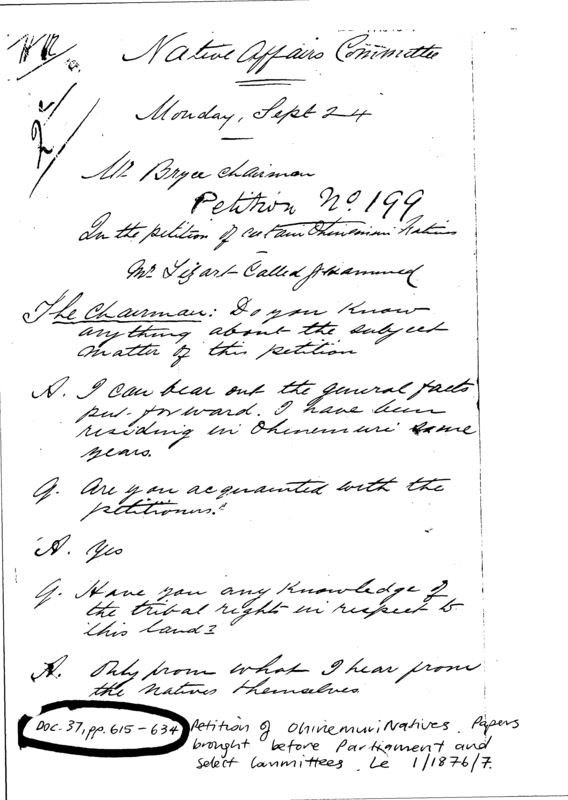 Native Affairs Committee
Monday, Sept 24
Mr Bryce Chairman
Petition No. 199
In the petition of certain Ohinemuri Natives
Mr Called & examined
The Chairman: Do you know
anything about the subject
matter of this petition
A. I can bear out the general facts
put forward. I have been
residing in Ohinemuri some
years.
Q. Are you acquainted with the
petitioners?
A. Yes
Q. Have you any knowledge of
the tribal rights in respect to
this land?
A. Only from what I hear from
the Natives themselves
Doc. 37, pp. 615-634
Petition of Ohinemuri Natives. Papers
brought before Parliament and
Select Committees. Le 1/1876/7.